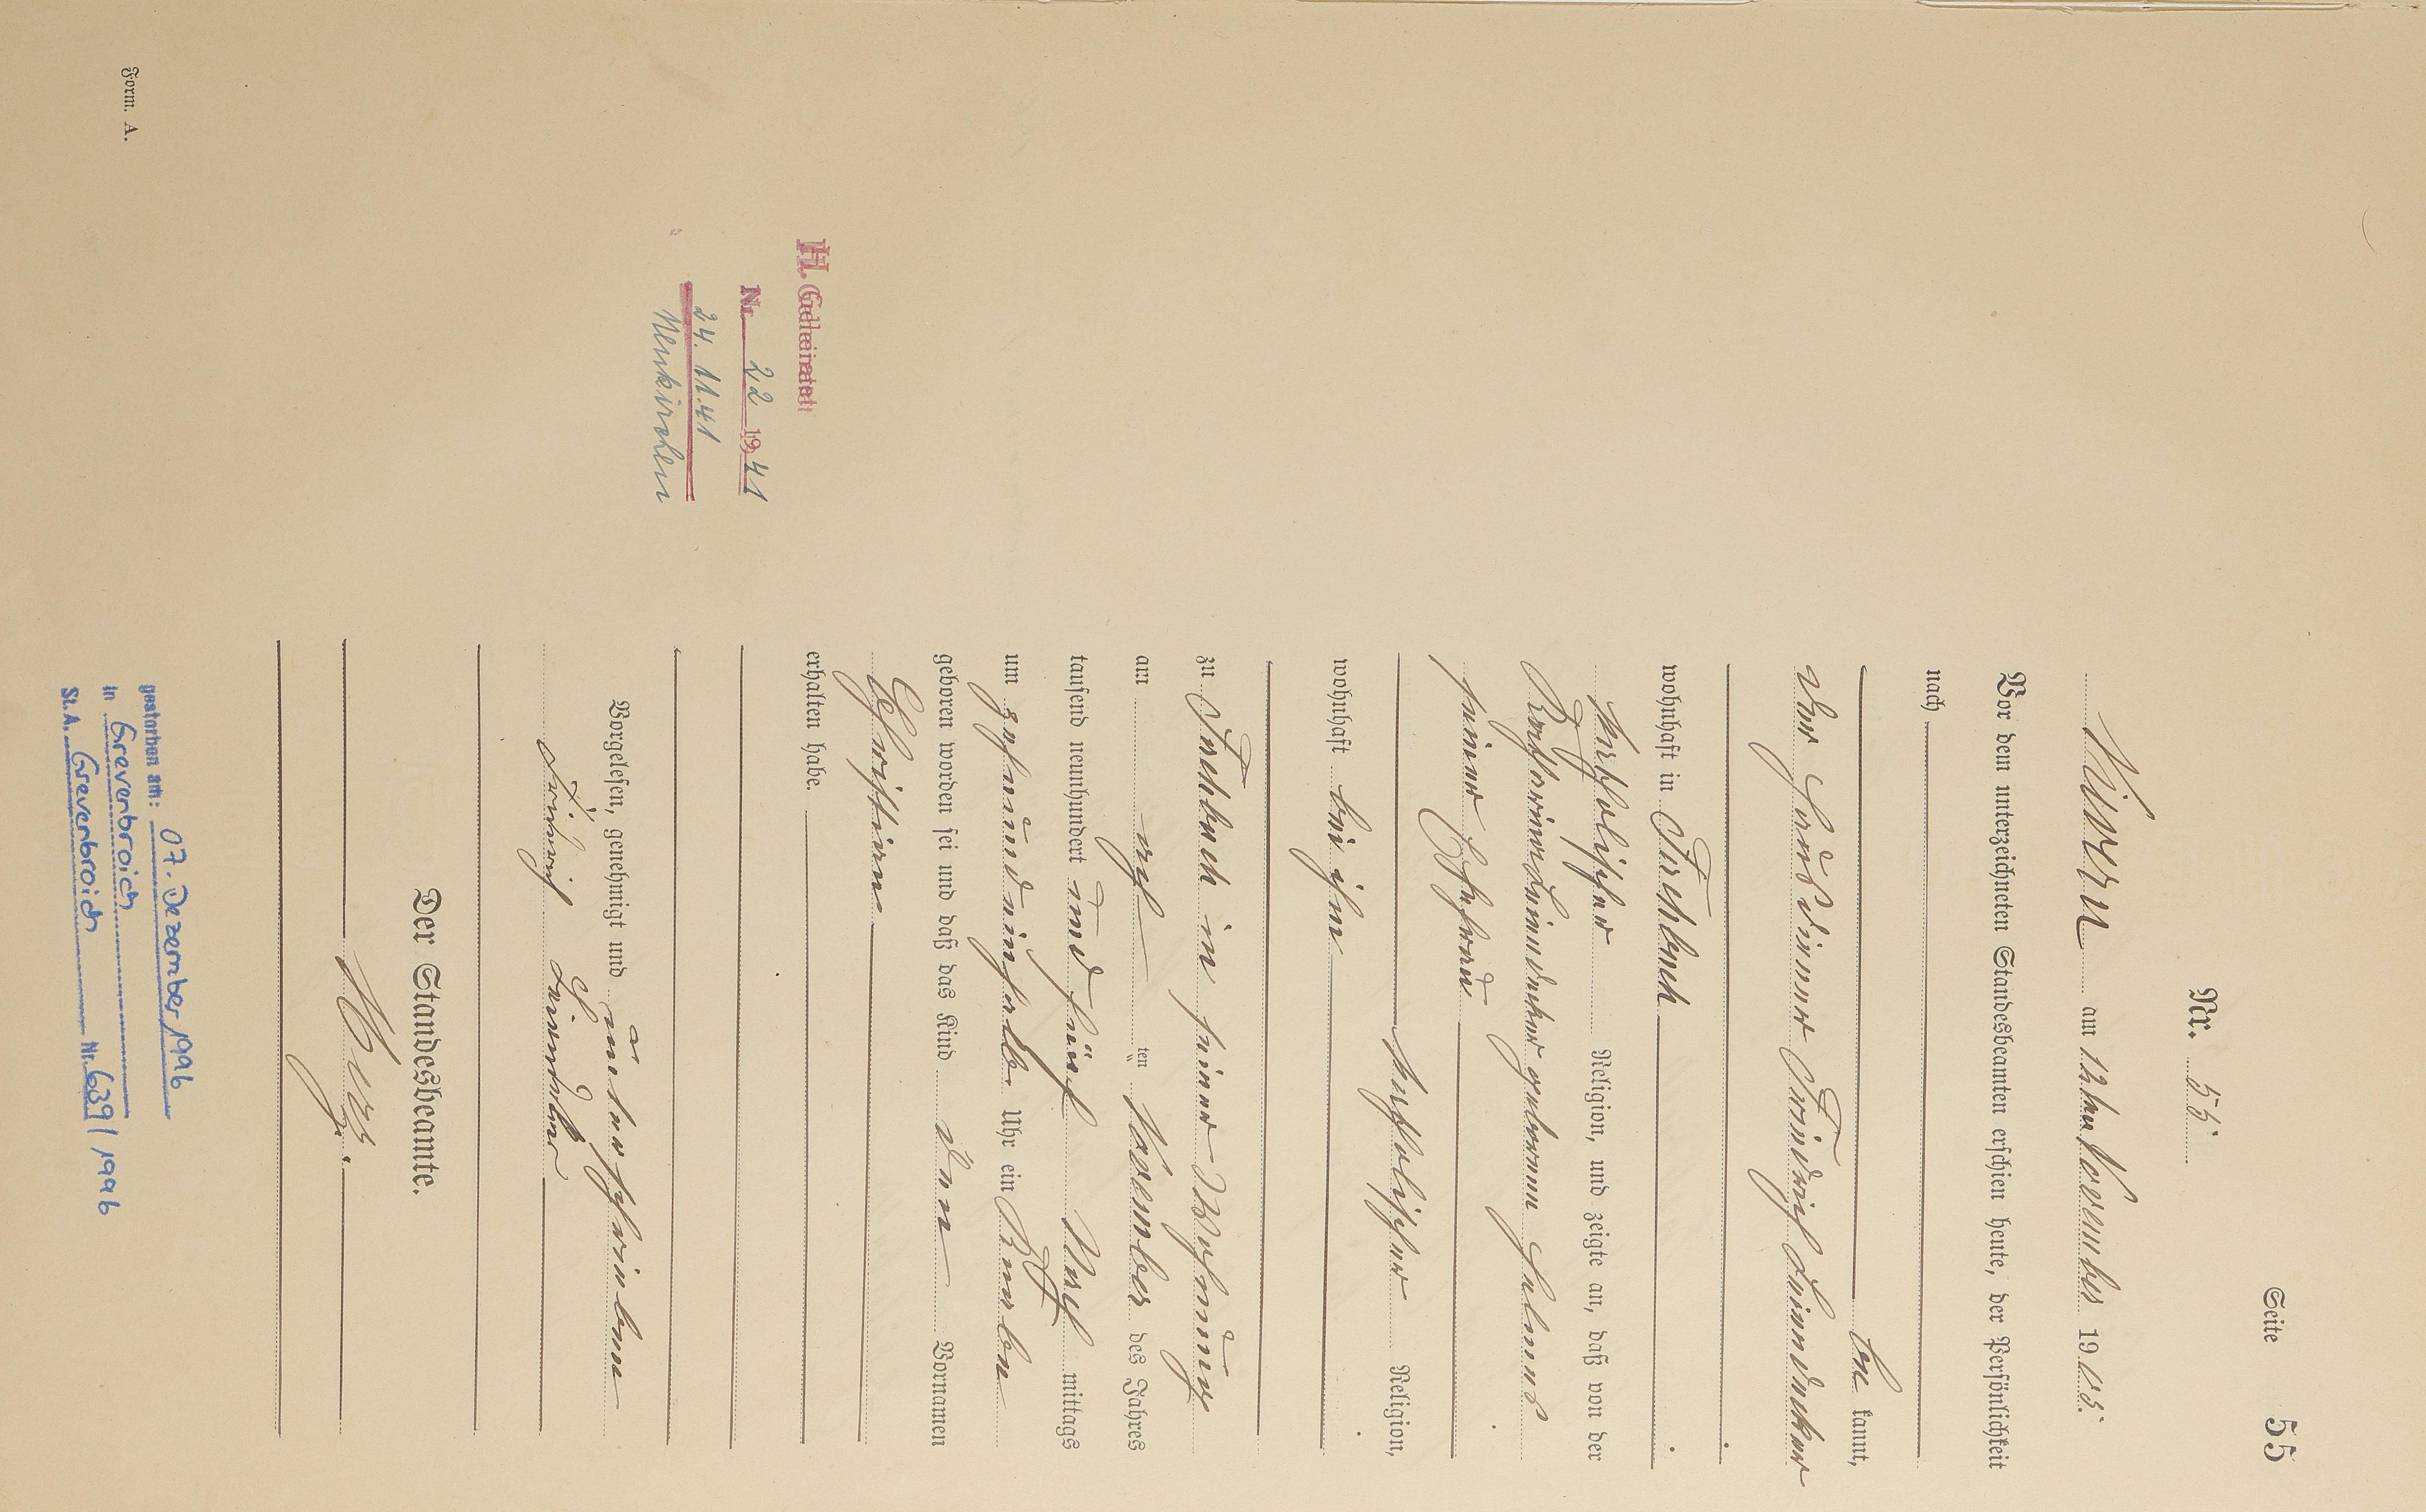 Seite 55
Nr. 55
Nievern am 12ten November 1905.
Vor dem unterzeichneten Standesbeamten erschien heute, der Persönlichkeit
nach
be kannt,
der Friedrich
wohnhaft in Fachbach
katholischer Religion, und zeigte an, daß von der
Katharina geborenen
seiner Ehefrau
katholischer Religion,
wohnhaft bei ihm
zu Fachbach in seiner Wohnung
am acht ten November des Jahres
tausend neunhundert und fünf Nach mittags
um zehnundeinhalb Uhr ein Knaben
geboren worden sei und daß das Kind den Vornamen
Christian
erhalten habe.
Vorgelesen, genehmigt und unterschrieben
Friedrich
Der Standesbeamte.
H. Geheiratet
Nr. 22 1941
24.11.41
Neukirchen
gestorben am: 07. Dezember 1996
in Grevenbroich
St.A. Grevenbroich Nr. 639/1996
Form. A.